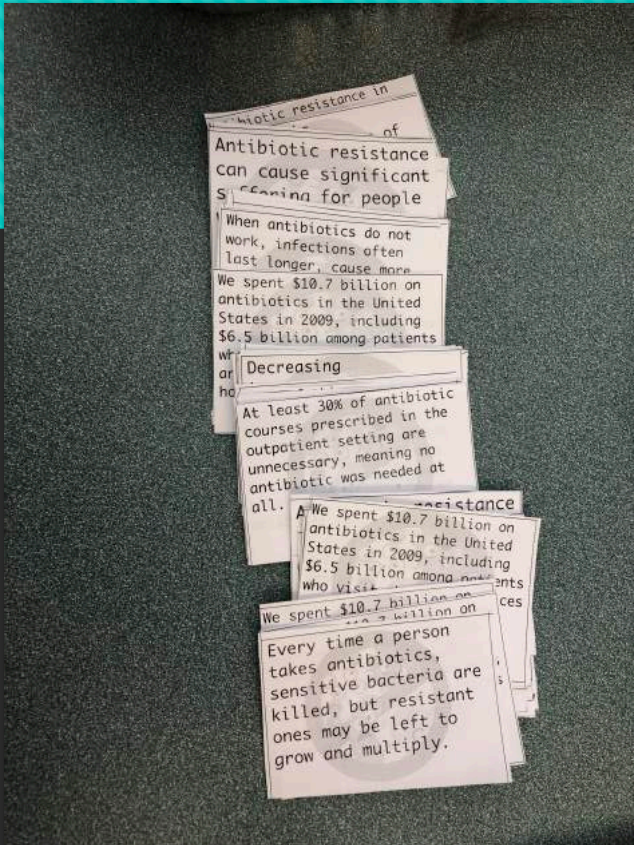 biotic resistance in
of
Antibiotic resistance
can cause significant
suffering for people
When antibiotics do not
work, infections often
last longer, cause more
We spent $10.7 billion on
antibiotics in the United
States in 2009, including
$6.5 billion among patients
wh
ar
ho
Decreasing
At least 30% of antibiotic
courses prescribed in the
outpatient setting are
unnecessary, meaning no
antibiotic was needed at
all.
A
resistance
We spent $10.7 billion on
antibiotics in the United
States in 2009, including
$6.5 billion among patients
who visit
ces
We spent $10.7 billion on
7 billion on
Every time a person
takes antibiotics,
sensitive bacteria are
killed, but resistant
ones may be left to
grow and multiply.